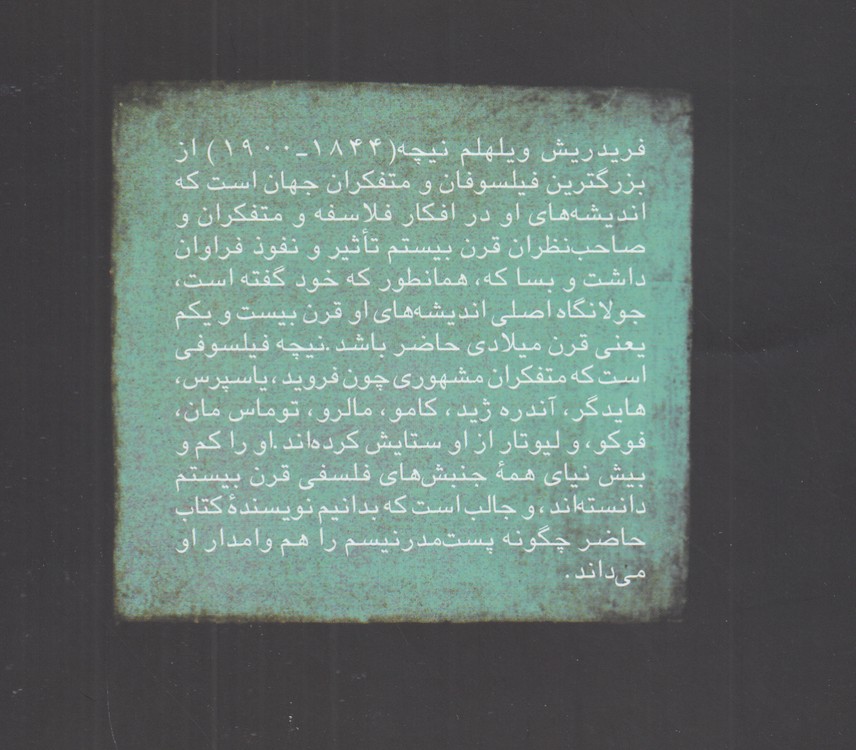 فریدریش ویلهلم نیچه(۱۸۴۴ـ۱۹۰۰) از
بزرگترین فیلسوفان و متفکران جهان است که
اندیشه‌های او در افکار فلاسفه و متفکران و
صاحب‌نظران قرن بیستم تأثیر و نفوذ فراوان
داشت و بسا که، همانطور که خود گفته است،
جولانگاه اصلی اندیشه‌های او قرن بیست و یکم
یعنی قرن میلادی حاضر باشد.نیچه فیلسوفی
است که متفکران مشهوری چون فروید، یاسپرس،
هایدگر، آندره ژید، کامو، مالرو، توماس مان،
فوکو، و لیوتار از او ستایش کرده‌اند.او را کم و
بیش نیای همهٔ جنبش‌های فلسفی قرن بیستم
دانسته‌اند، و جالب است که بدانیم نویسندهٔ کتاب
حاضر چگونه پست‌مدرنیسم را هم وامدار او
می‌داند.